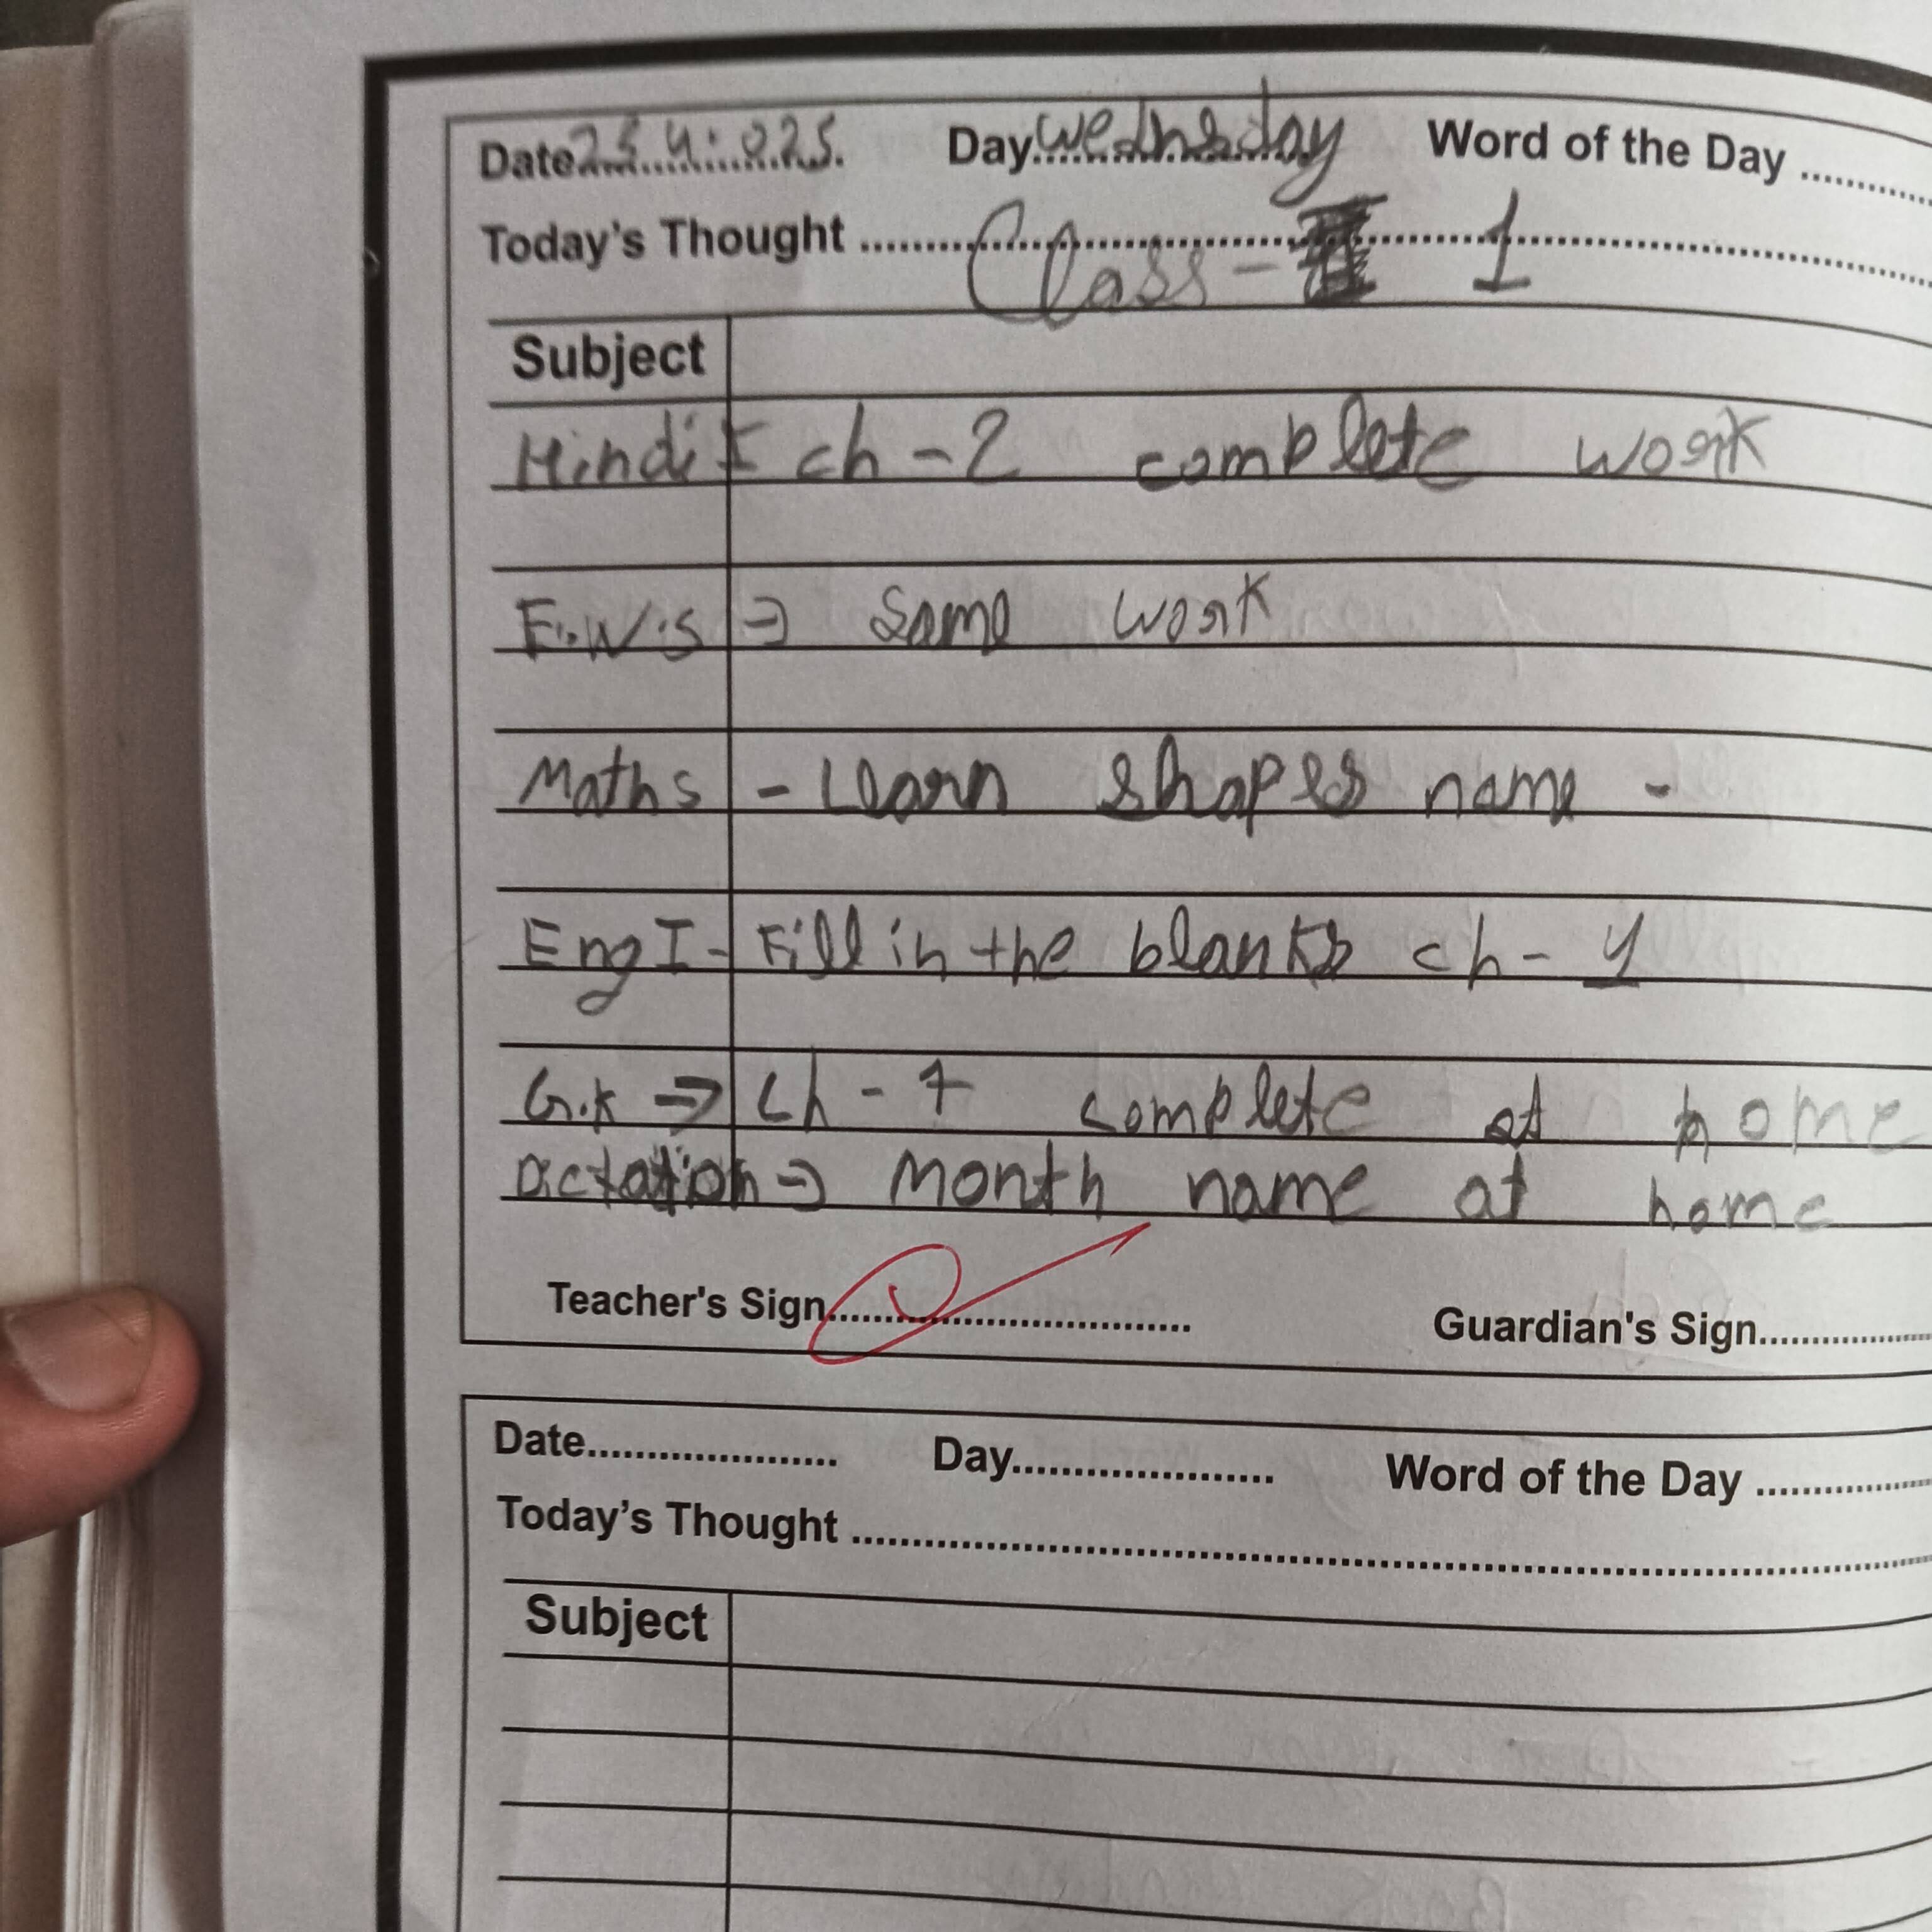 Date 25.4.025. Day Wednesday Word of the Day
Today's Thought
Class - 1
Subject
Hindi I ch - 2 complete work
E.W.S => Same work
Maths - Learn shapes name -
Eng I - Fill in the blanks ch - 4
G.K => Ch - 7 complete at home
Dictation => Month name at home
Teacher's Sign
Guardian's Sign
Date Day Word of the Day
Today's Thought
Subject